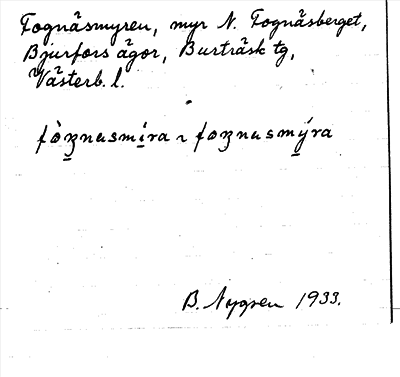 Fognäsmyren, myr N. Fognäsberget,
Bjurfors ägor, Burträsk tg,
Västerb. l.
fòʒnasmíra ~ foʒnasmýra
B. Nygren 1933.